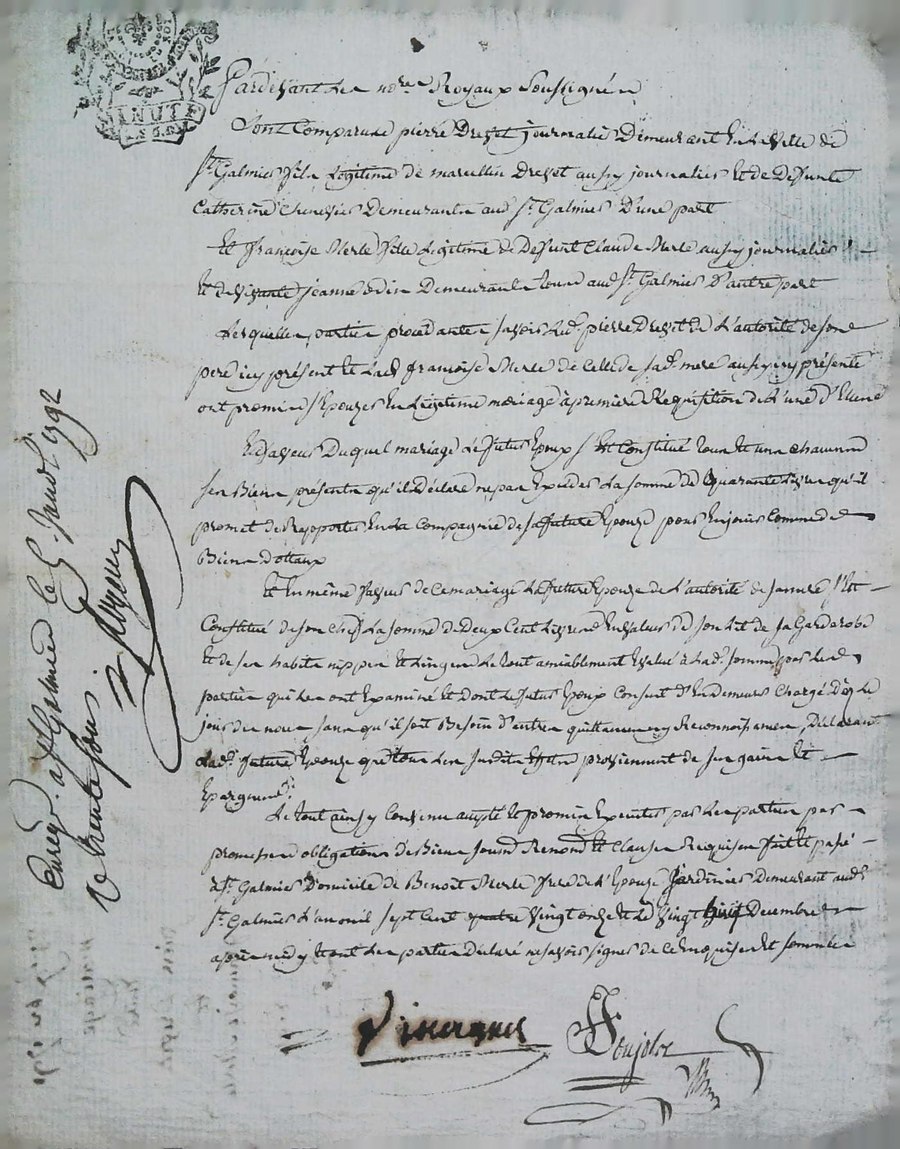 MINUTE
Pardevant les no.res Royaux Soussignés
Sont Comparus pierre Drevet journalier Demeurant En la ville de
St. Galmier fils Légitime de marcellin Drevet aussy journalier Et de Defunte
Catherine Demeurants aud. St. Galmier D'une part
Et françoise Merle fille Légitime de Deffunt Claude Merle aussy journalier
Et de vivante jeanne Demeurants tous aud. St. Galmier D'autre part
Lesquelles parties procédantes savoir Led. pierre Drevet de L'autorité de son
pere icy présent Et Lad. françoise Merle de Celle de sad. mere aussy icy présente
ont promis s'Epouzer En Légitime mariage à première Réquisition de L'une d'Elles
En faveur Duquel mariage Le futur Epoux s'Est Constitué tous Et uns chacuns
ses Biens présents qu'il Déclare ne pas Excéder La somme de Quarante Livres qu'il
promet de Rapporter En La Compagnie de sa future Epouze pour En jouir Comme de
Biens Dottaux
Et En même faveur de Ce mariage La future Epouze de L'autorité de sa mere s'Est
Constitué de son Chef La somme de Deux Cent Livres En valeur de son Lit de sa Garderobe
Et de ses habits nippes Et Linges Le tout amiablement Evalué à Lad. somme par Les
parties qui Les ont Examiné Et Dont Le futur Epoux Consent D'En demeurer Chargé Dès Le
jour des noces sans qu'il soit Besoin D'autres quittances ny Reconnoissances, Déclarant
Lad. future Epouze que tous Les susdits Effets proviennent de ses gains Et
Epargnes.
Le tout ainsy Convenu accepté Et promis Executer par Les parties par
promesses obligations de Biens Soumd Renond Et Clauses Requises fait Et passé
à St. Galmier Domicile de Benoit Merle frere de L'Epouze Jardinier Demeurant aud.
St. Galmier L'an mil sept Cent quatre vingt onze Et Le vingt huit Decembre
après midy Et ont Les parties Déclaré ne savoir signer de Ce Enquises Et sommées
Enreg. a St Galmier le 5 Janv. 1792
R. trente sous